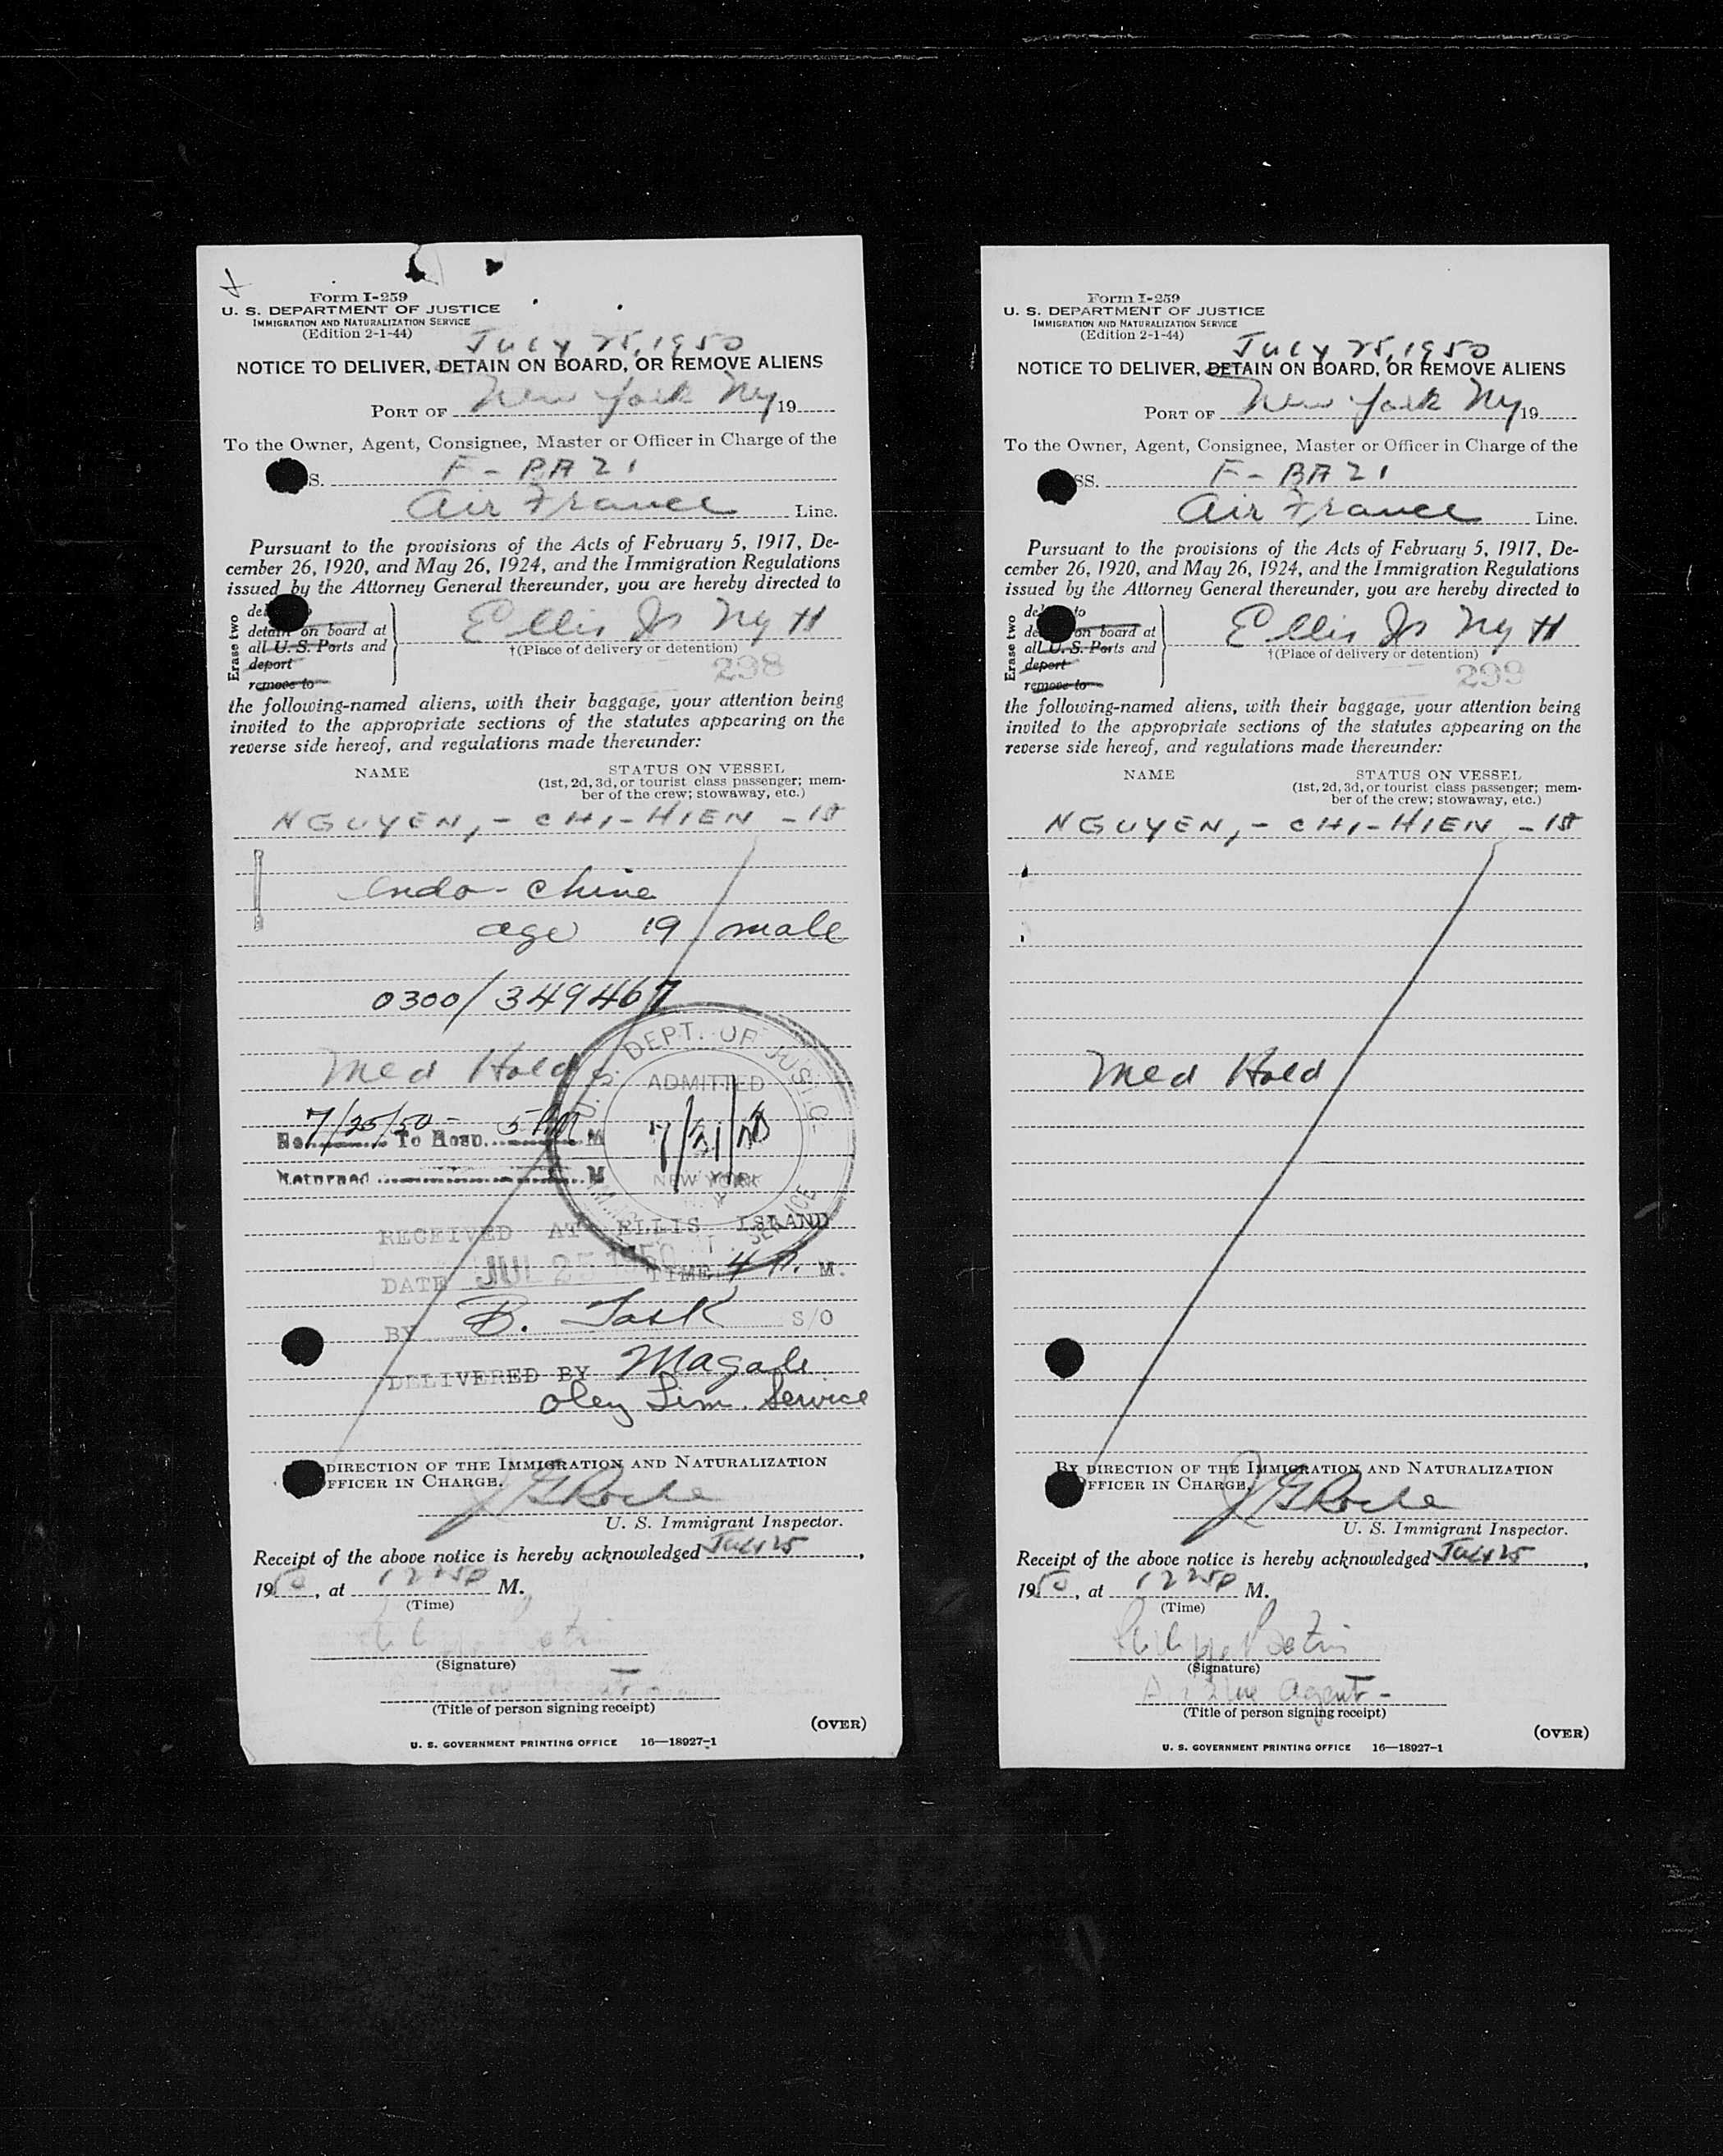 Form I-259
U. S. DEPARTMENT OF JUSTICE
IMMIGRATION AND NATURALIZATION SERVICE
(Edition 2-1-44)
July 25, 1950
NOTICE TO DELIVER, DETAIN ON BOARD, OR REMOVE ALIENS
PORT OF New York Ny 19
To the Owner, Agent, Consignee, Master or Officer in Charge of the
S. F - BA 21
Air France Line.
Pursuant to the provisions of the Acts of February 5, 1917, De-
cember 26, 1920, and May 26, 1924, and the Immigration Regulations
issued by the Attorney General thereunder, you are hereby directed to
Erase two
detain on board at
all U. S. Ports and
deport
remove to
Ellis Is Ny H
†(Place of delivery or detention)
298
the following-named aliens, with their baggage, your attention being
invited to the appropriate sections of the statutes appearing on the
reverse side hereof, and regulations made thereunder:
NAME STATUS ON VESSEL
(1st, 2d, 3d, or tourist class passenger; mem-
ber of the crew; stowaway, etc.)
NGUYEN, - CHI-HIEN - 1st
Indo-Chine
age 19 male
0300/349467
Med Hold
7/25/50 To Hosp. 5 PM M
Returned M
U. S. DEPT. OF JUSTICE
ADMITTED
NEW YORK
SERVICE
RECEIVED AT ELLIS ISLAND
DATE JUL 25 1950 TIME 4 P. M.
BY B. Task S/O
DELIVERED BY Magali
Lim. Service
DIRECTION OF THE IMMIGRATION AND NATURALIZATION
FFICER IN CHARGE.
J G Roche
U. S. Immigrant Inspector.
Receipt of the above notice is hereby acknowledged July 25,
1950, at 12 25P M.
(Time)
(Signature)
(Title of person signing receipt)
(OVER)
U. S. GOVERNMENT PRINTING OFFICE 16—18927-1
Form I-259
U. S. DEPARTMENT OF JUSTICE
IMMIGRATION AND NATURALIZATION SERVICE
(Edition 2-1-44)
July 25, 1950
NOTICE TO DELIVER, DETAIN ON BOARD, OR REMOVE ALIENS
PORT OF New York Ny 19
To the Owner, Agent, Consignee, Master or Officer in Charge of the
SS. F - BA 21
Air France Line.
Pursuant to the provisions of the Acts of February 5, 1917, De-
cember 26, 1920, and May 26, 1924, and the Immigration Regulations
issued by the Attorney General thereunder, you are hereby directed to
Erase two
to
on board at
all U. S. Ports and
deport
remove to
Ellis Is Ny H
†(Place of delivery or detention)
299
the following-named aliens, with their baggage, your attention being
invited to the appropriate sections of the statutes appearing on the
reverse side hereof, and regulations made thereunder:
NAME STATUS ON VESSEL
(1st, 2d, 3d, or tourist class passenger; mem-
ber of the crew; stowaway, etc.)
NGUYEN, - CHI-HIEN - 1st
Med Hold
BY DIRECTION OF THE IMMIGRATION AND NATURALIZATION
FFICER IN CHARGE.
J G Roche
U. S. Immigrant Inspector.
Receipt of the above notice is hereby acknowledged July 25,
1950, at 12 25P M.
(Time)
(Signature)
Agent -
(Title of person signing receipt)
(OVER)
U. S. GOVERNMENT PRINTING OFFICE 16—18927-1